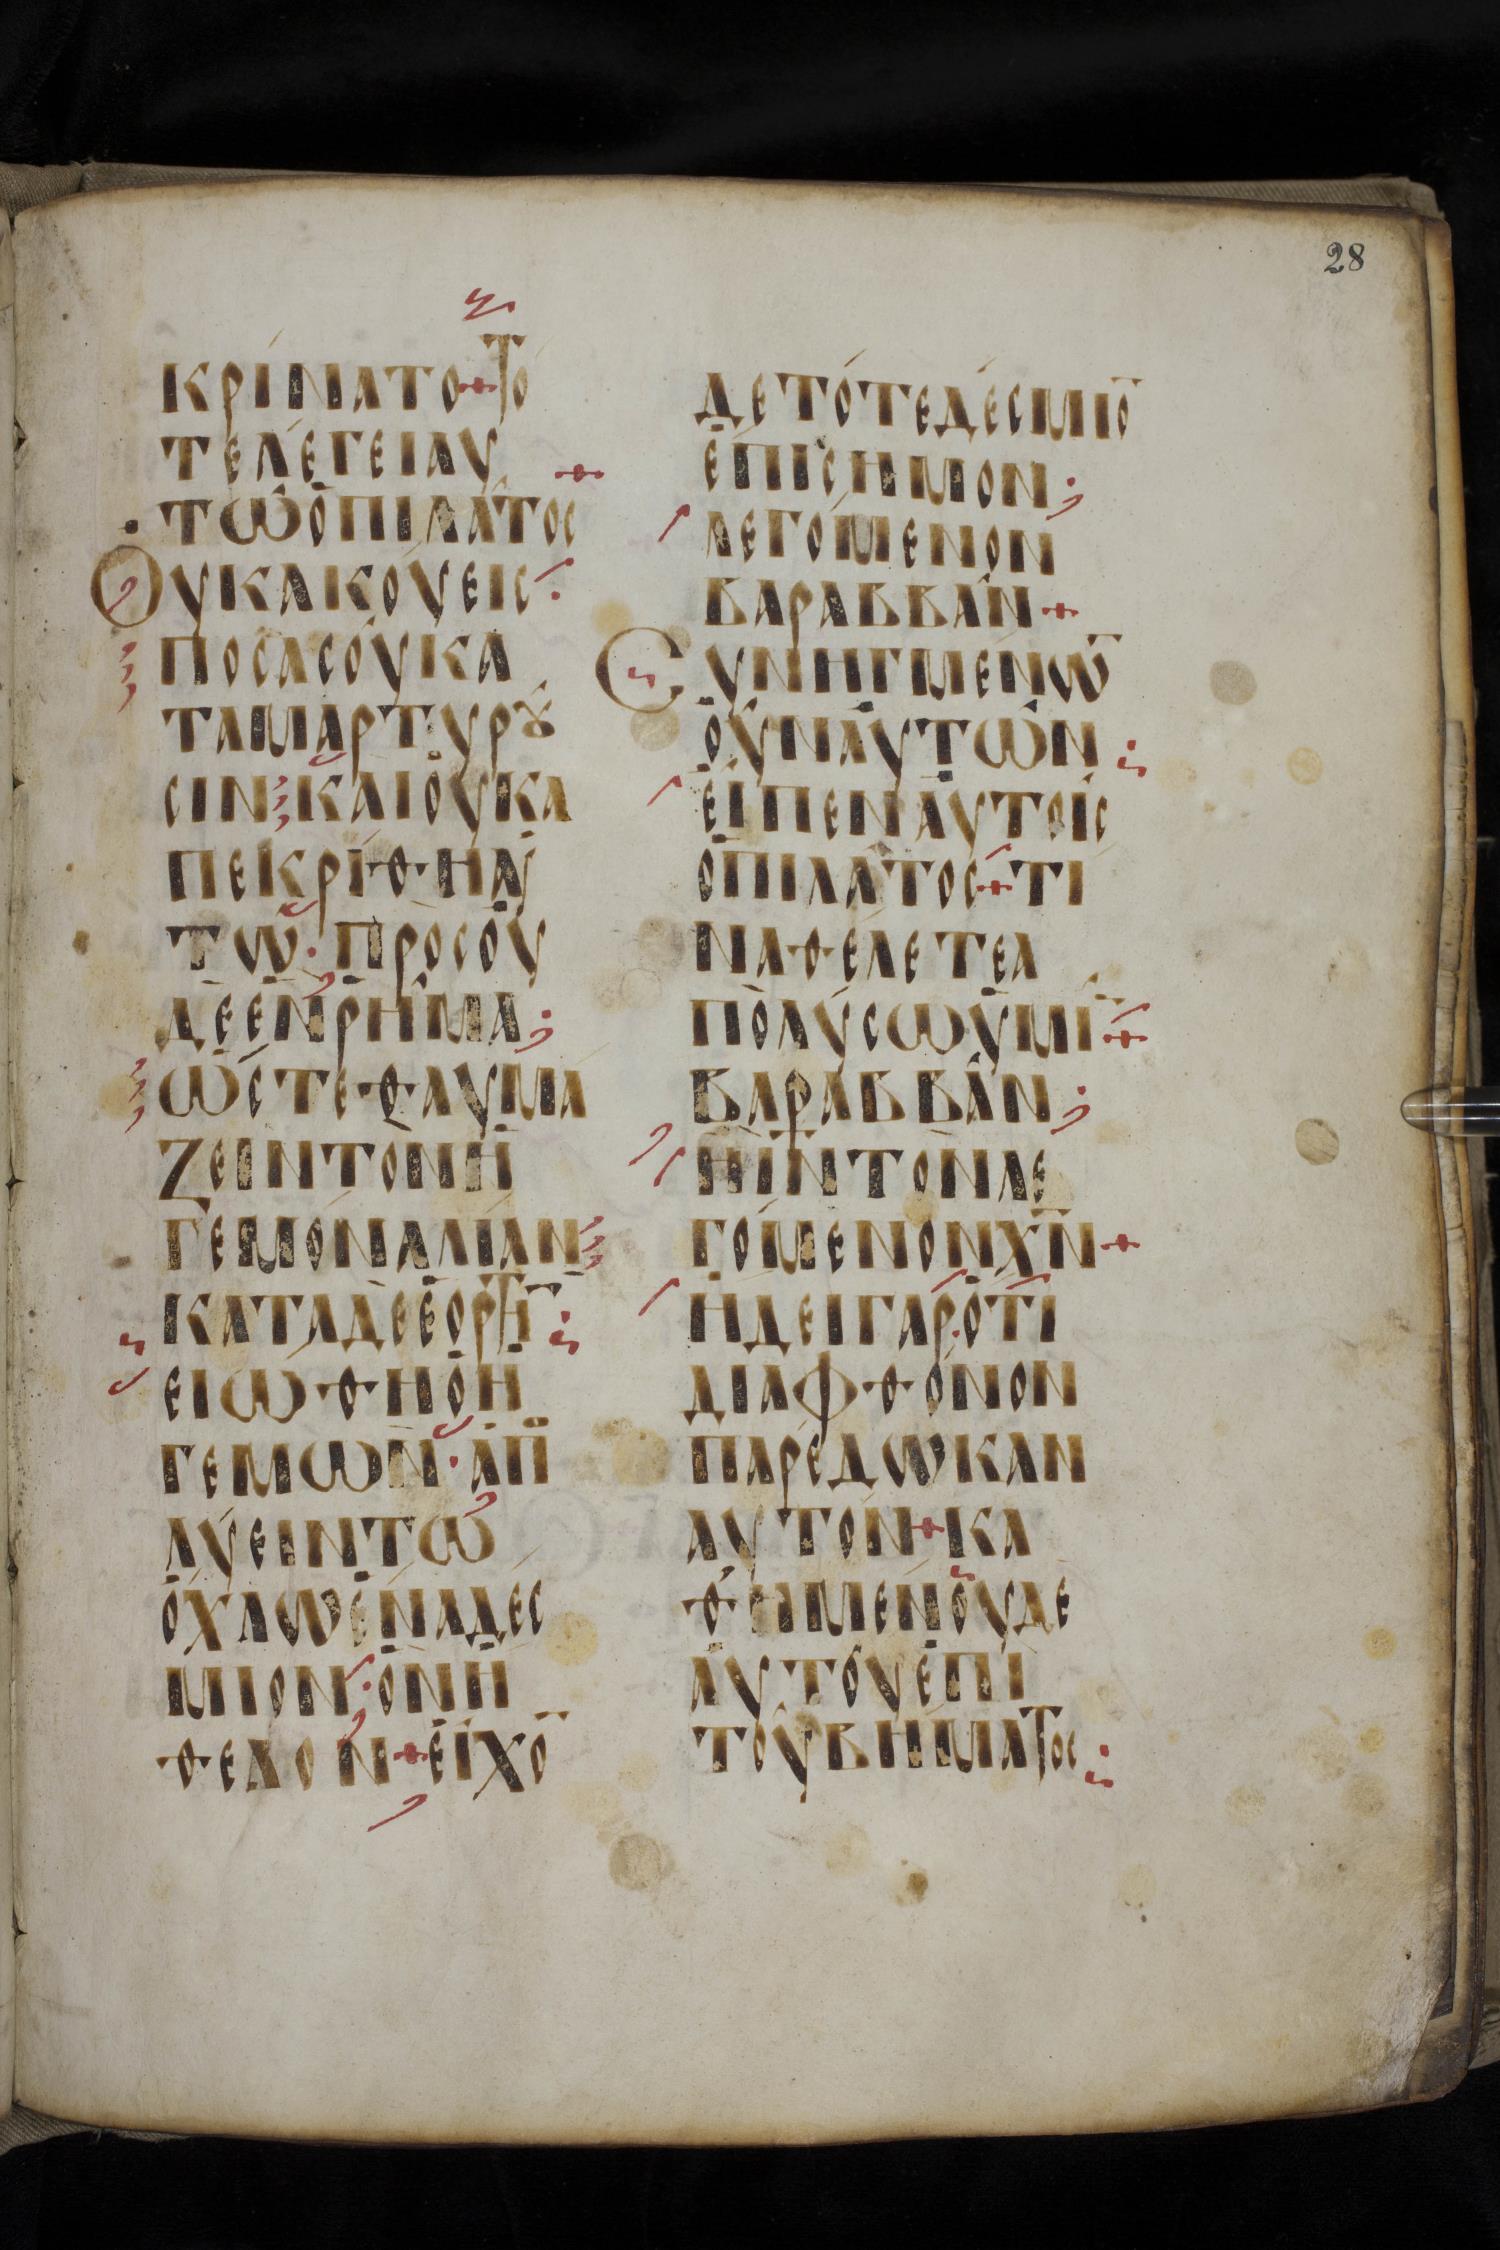 28
ΚΡΙΝΑΤΟ + ΤΟ
ΤΕΛΕΓΕΙΑΥ
ΤΩ Ο ΠΙΛΑΤΟΣ +
ΟΥΚΑΚΟΥΕΙΣ
ΠΟΣΑΣΟΥΚΑ
ΤΑΜΑΡΤΥΡȢ
ΣΙΝ ΚΑΙΟΥΚΑ
ΠΕΚΡΙΘΗΑΥ
ΤΩ · ΠΡΟΣΟΥ
ΔΕΕΝΡΗΜΑ
ΩΣΤΕΘΑΥΜΑ
ΖΕΙΝΤΟΝΗ
ΓΕΜΟΝΑΛΙΑΝ
ΚΑΤΑΔΕΕΟΡΤΗ̅
ΕΙΩΘΗΟΗ
ΓΕΜΩΝ · ΑΠ
ΛΥΕΙΝΤΩ
ΟΧΛΩΕΝΑΔΕΣ
ΜΙΟΝ · ΟΝΗ
ΘΕΛΟΝ + ΕΙΧΟ̅
ΔΕΤΟΤΕΔΕΣΜΙΟ̅
ΕΠΙΣΗΜΟΝ
ΛΕΓΟΜΕΝΟΝ
ΒΑΡΑΒΒΑΝ +
ΣΥΝΗΓΜΕΝΩ̅
ΟΥΝΑΥΤΩΝ
ΕΙΠΕΝΑΥΤΟΙΣ
ΟΠΙΛΑΤΟΣ + ΤΙ
ΝΑΘΕΛΕΤΕΑ
ΠΟΛΥΣΩΥΜΙ̅ +
ΒΑΡΑΒΒΑΝ
ΗΙ̅Ν̅ΤΟΝΛΕ
ΓΟΜΕΝΟΝΧ̅Ν̅ +
ΗΔΕΙΓΑΡ · ΟΤΙ
ΔΙΑΦΘΟΝΟΝ
ΠΑΡΕΔΩΚΑΝ
ΑΥΤΟΝ + ΚΑ
ΘΗΜΕΝΟΥΔΕ
ΑΥΤΟΥΕΠΙ
ΤΟΥΒΗΜΑΤΟΣ